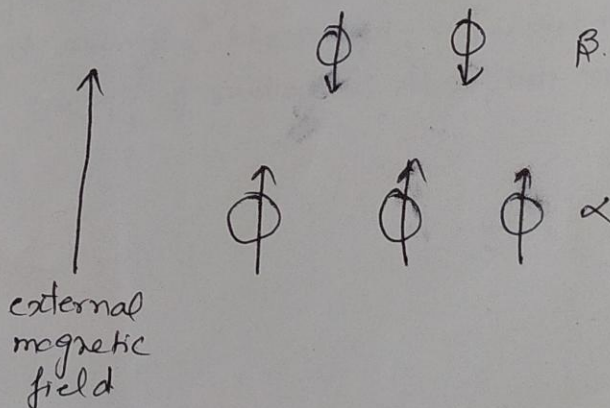 β.
α
external
magnetic
field